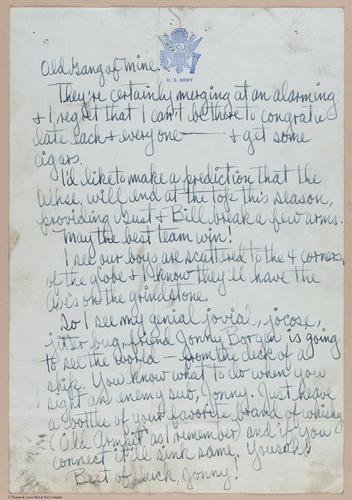 U. S. ARMY
Old Gang of Mine:
They're certainly merging at an alarming
& I regret that I can't be there to congratu
late each & everyone — & get some
cigars.
I'd like to make a prediction that the
Whse. will end at the top this season,
providing Gust & Bill break a few arms.
May the best team win!
I see our boys are scattered to the 4 corners
of the globe & I know they'll have the
on the grindstone.
So I see my genial, jovial, jocose,
jitter bug friend Jonny Borgen is going
to see the world — from the deck of a
ship. You know what to do when you
sight an enemy sub, Jonny. Just heave
a bottle of your favorite brand of whisky
(Old Armpit as I remember, and if you
connect it'll sink same. Yousah!
Best of luck, Jonny!